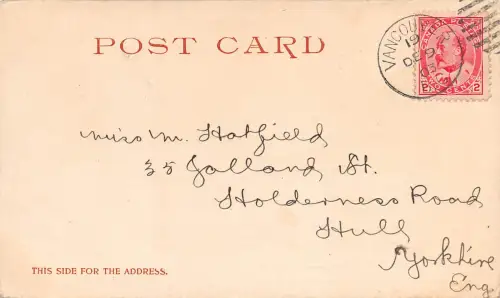 POST CARD
VANCOUV
19
DE 9
03
CANADA POSTAGE
2 CENTS 2
Miss M. Hatfield
35 Jalland St.
Holderness Road
Hull
Yorkshire
Eng
THIS SIDE FOR THE ADDRESS.